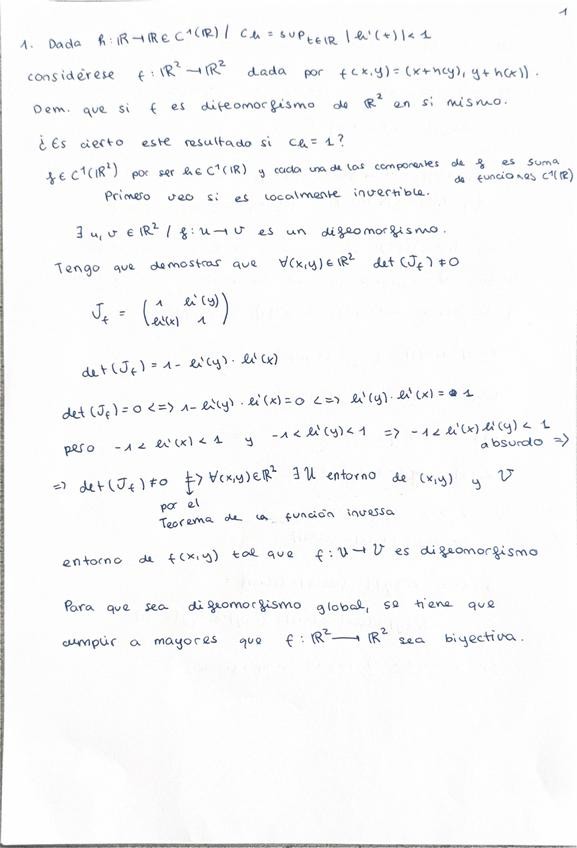 1
1. Dada h: ℝ→ℝ ∈ C¹(ℝ) / Ch = sup_{t∈ℝ} |h'(t)| < 1
considérese f: ℝ² → ℝ² dada por f(x,y) = (x+h(y), y+h(x)).
Dem. que si f es difeomorfismo de ℝ² en si mismo.
¿Es cierto este resultado si Ch = 1?
f ∈ C¹(ℝ²) por ser h ∈ C¹(ℝ) y cada una de las componentes de f es suma
de funciones C¹(ℝ)
Primero veo si es localmente invertible.
∃ u, v ∈ ℝ² / f: u → v es un difeomorfismo.
Tengo que demostrar que ∀(x,y) ∈ ℝ² det(J_f) ≠ 0
J_f = ( 1 h'(y)
h'(x) 1 )
det(J_f) = 1 - h'(y) · h'(x)
det(J_f) = 0 <=> 1 - h'(y) · h'(x) = 0 <=> h'(y) · h'(x) = 1
pero -1 < h'(x) < 1 y -1 < h'(y) < 1 => -1 < h'(x) h'(y) < 1
absurdo =>
=> det(J_f) ≠ 0 => ∀(x,y) ∈ ℝ² ∃ U entorno de (x,y) y V
por el
Teorema de la función inversa
entorno de f(x,y) tal que f: U → V es difeomorfismo
Para que sea difeomorfismo global, se tiene que
cumplir a mayores que f: ℝ² → ℝ² sea biyectiva.